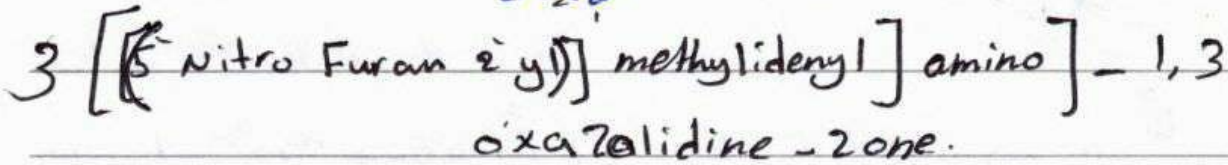 3 [[(5̀ Nitro Furan 2̀ yl)] methylidenyl] amino] - 1,3
oxazolidine - 2 one.